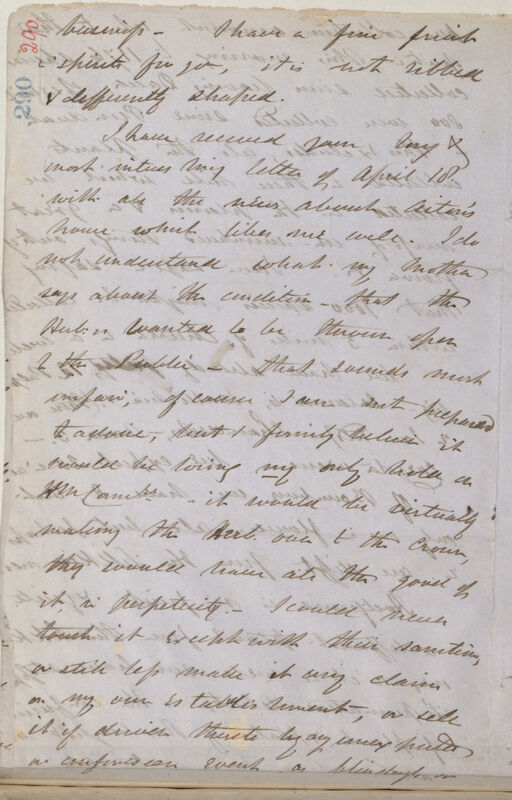 290 290
business - I have a fine fruit
in spirits for you, it is not ribbed
& differently shaped.
I have received your long &
most interesting letter of April 18
with all the news about Aiton's
house which likes me well. I do
not understand what my Mother
says about the condition - that the
Herb. is wanted to be thrown open
to the Public - that sounds most
unfair; of course I am not prepared
to advise, but I firmly believe it
would be losing my only hold on
- it would be virtually
making the Herb. over to the Crown,
they would have all the good of
it in perpetuity - I could never
touch it except with their sanction,
or still less make it any claim
on my own establishment, or sell
it if driven thereto by any unexpected
or unforeseen event as blindness or